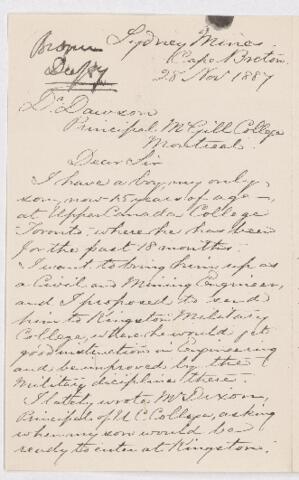 Brown
Dec/87
Sydney Mines
Cape Breton
28 Nov 1887
Dr Dawson
Principal McGill College
Montreal.
Dear Sir
I have a boy, my only
son, now 15 years of age -
at Upper Canada College
Toronto - where he has been
for the past 18 months -
I want to bring him up as
a Civil and Mining Engineer,
and I proposed to send
him to Kingston Military
College, where he would get
good instruction in Engineering
and be improved by the
Military discipline there -
I lately wrote Mr Dixon,
Principal of U C College, asking
when my son would be
ready to enter at Kingston.